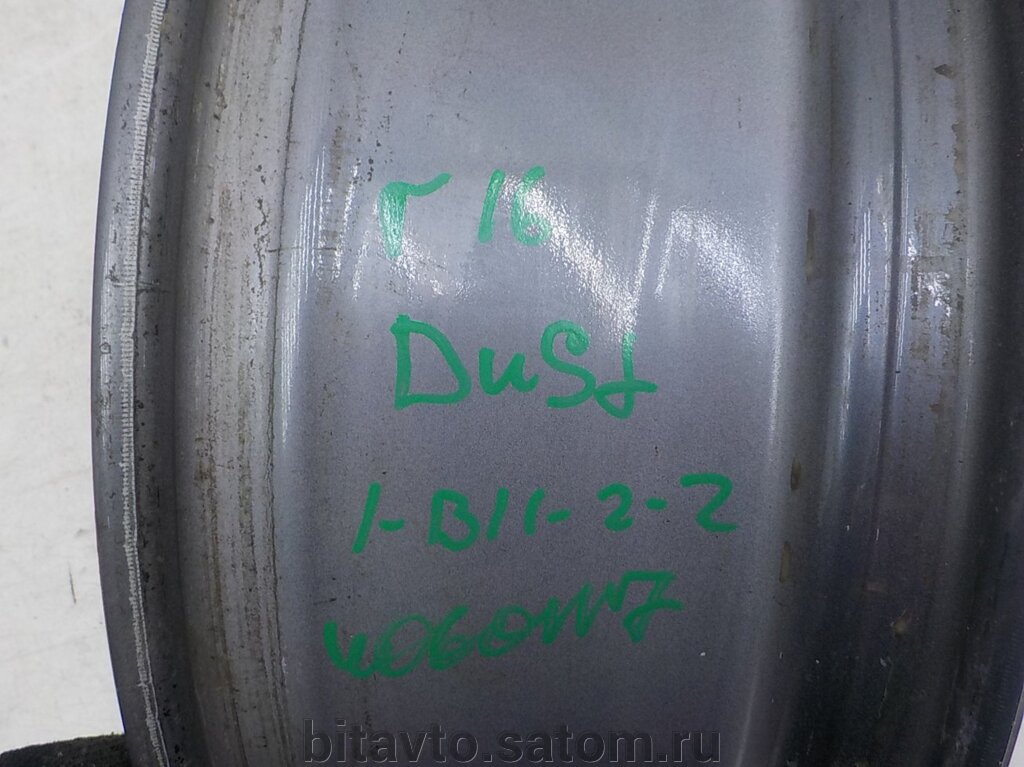 r 16
Dust
1-B11-2-2
bitavto.satom.ru